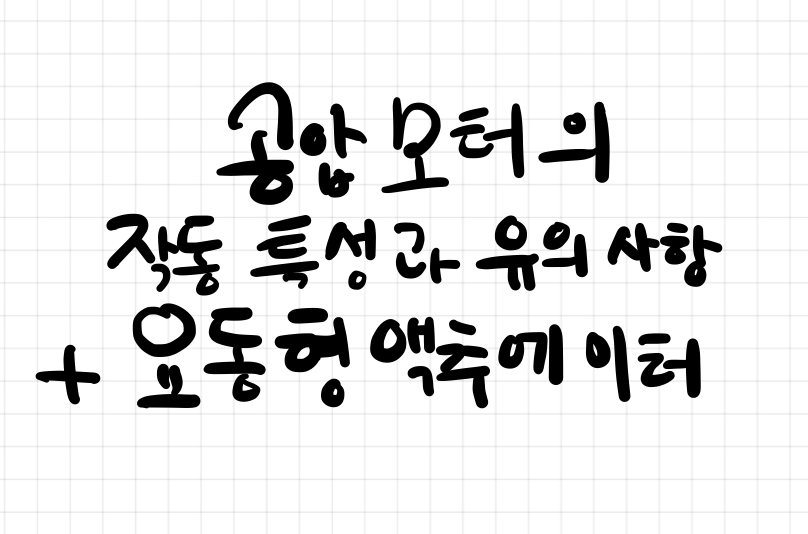 공압 모터의
작동 특성과 유의 사항
+ 요동형 액추에이터